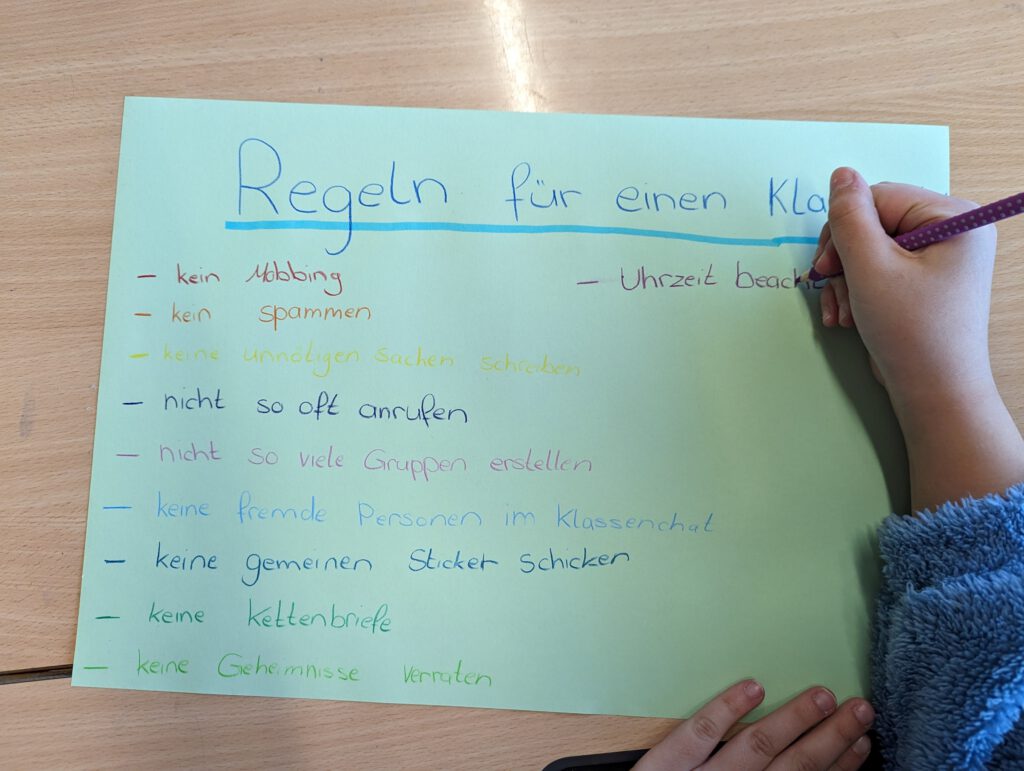 Regeln für einen Kla
- kein Mobbing
- kein spammen
- keine unnötigen Sachen schreiben
- nicht so oft anrufen
- nicht so viele Gruppen erstellen
- keine fremde Personen im Klassenchat
- keine gemeinen Sticker schicken
- keine Kettenbriefe
- keine Geheimnisse verraten
- Uhrzeit beacht